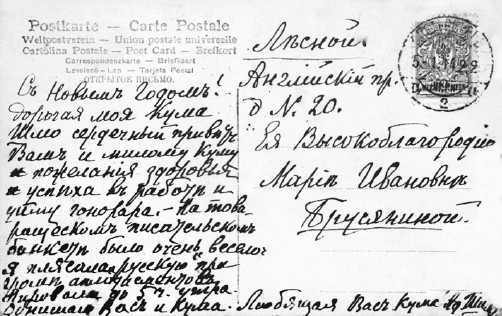 Postkarte — Carte Postale
Weltpostverein — Union postale universelle
Cartolina Postale — Post Card — Brefkort
Correspondenzkarte — Briefkaart
Levelező-Lap — Tarjeta Postal
ОТКРЫТОЕ ПИСЬМО.
Съ Новымъ Годомъ!
дорогая моя Кума
Шлю сердечный привѣтъ
Вамъ и милому Куму
и пожелания здоровья
и успѣха въ работѣ и
гонорара. — На това
рищескомъ писательскомъ
банкетѣ было очень весело
я плясала русскую при
громѣ аплодисментовъ
Пировали до 5 ч. утра
Васъ и Кума.
Любящая Васъ Кума
Лѣсной.
Англійскій пр.
д N. 20.
Ея Высокоблагородію
Маріи Ивановнѣ
Брусяниной.
2